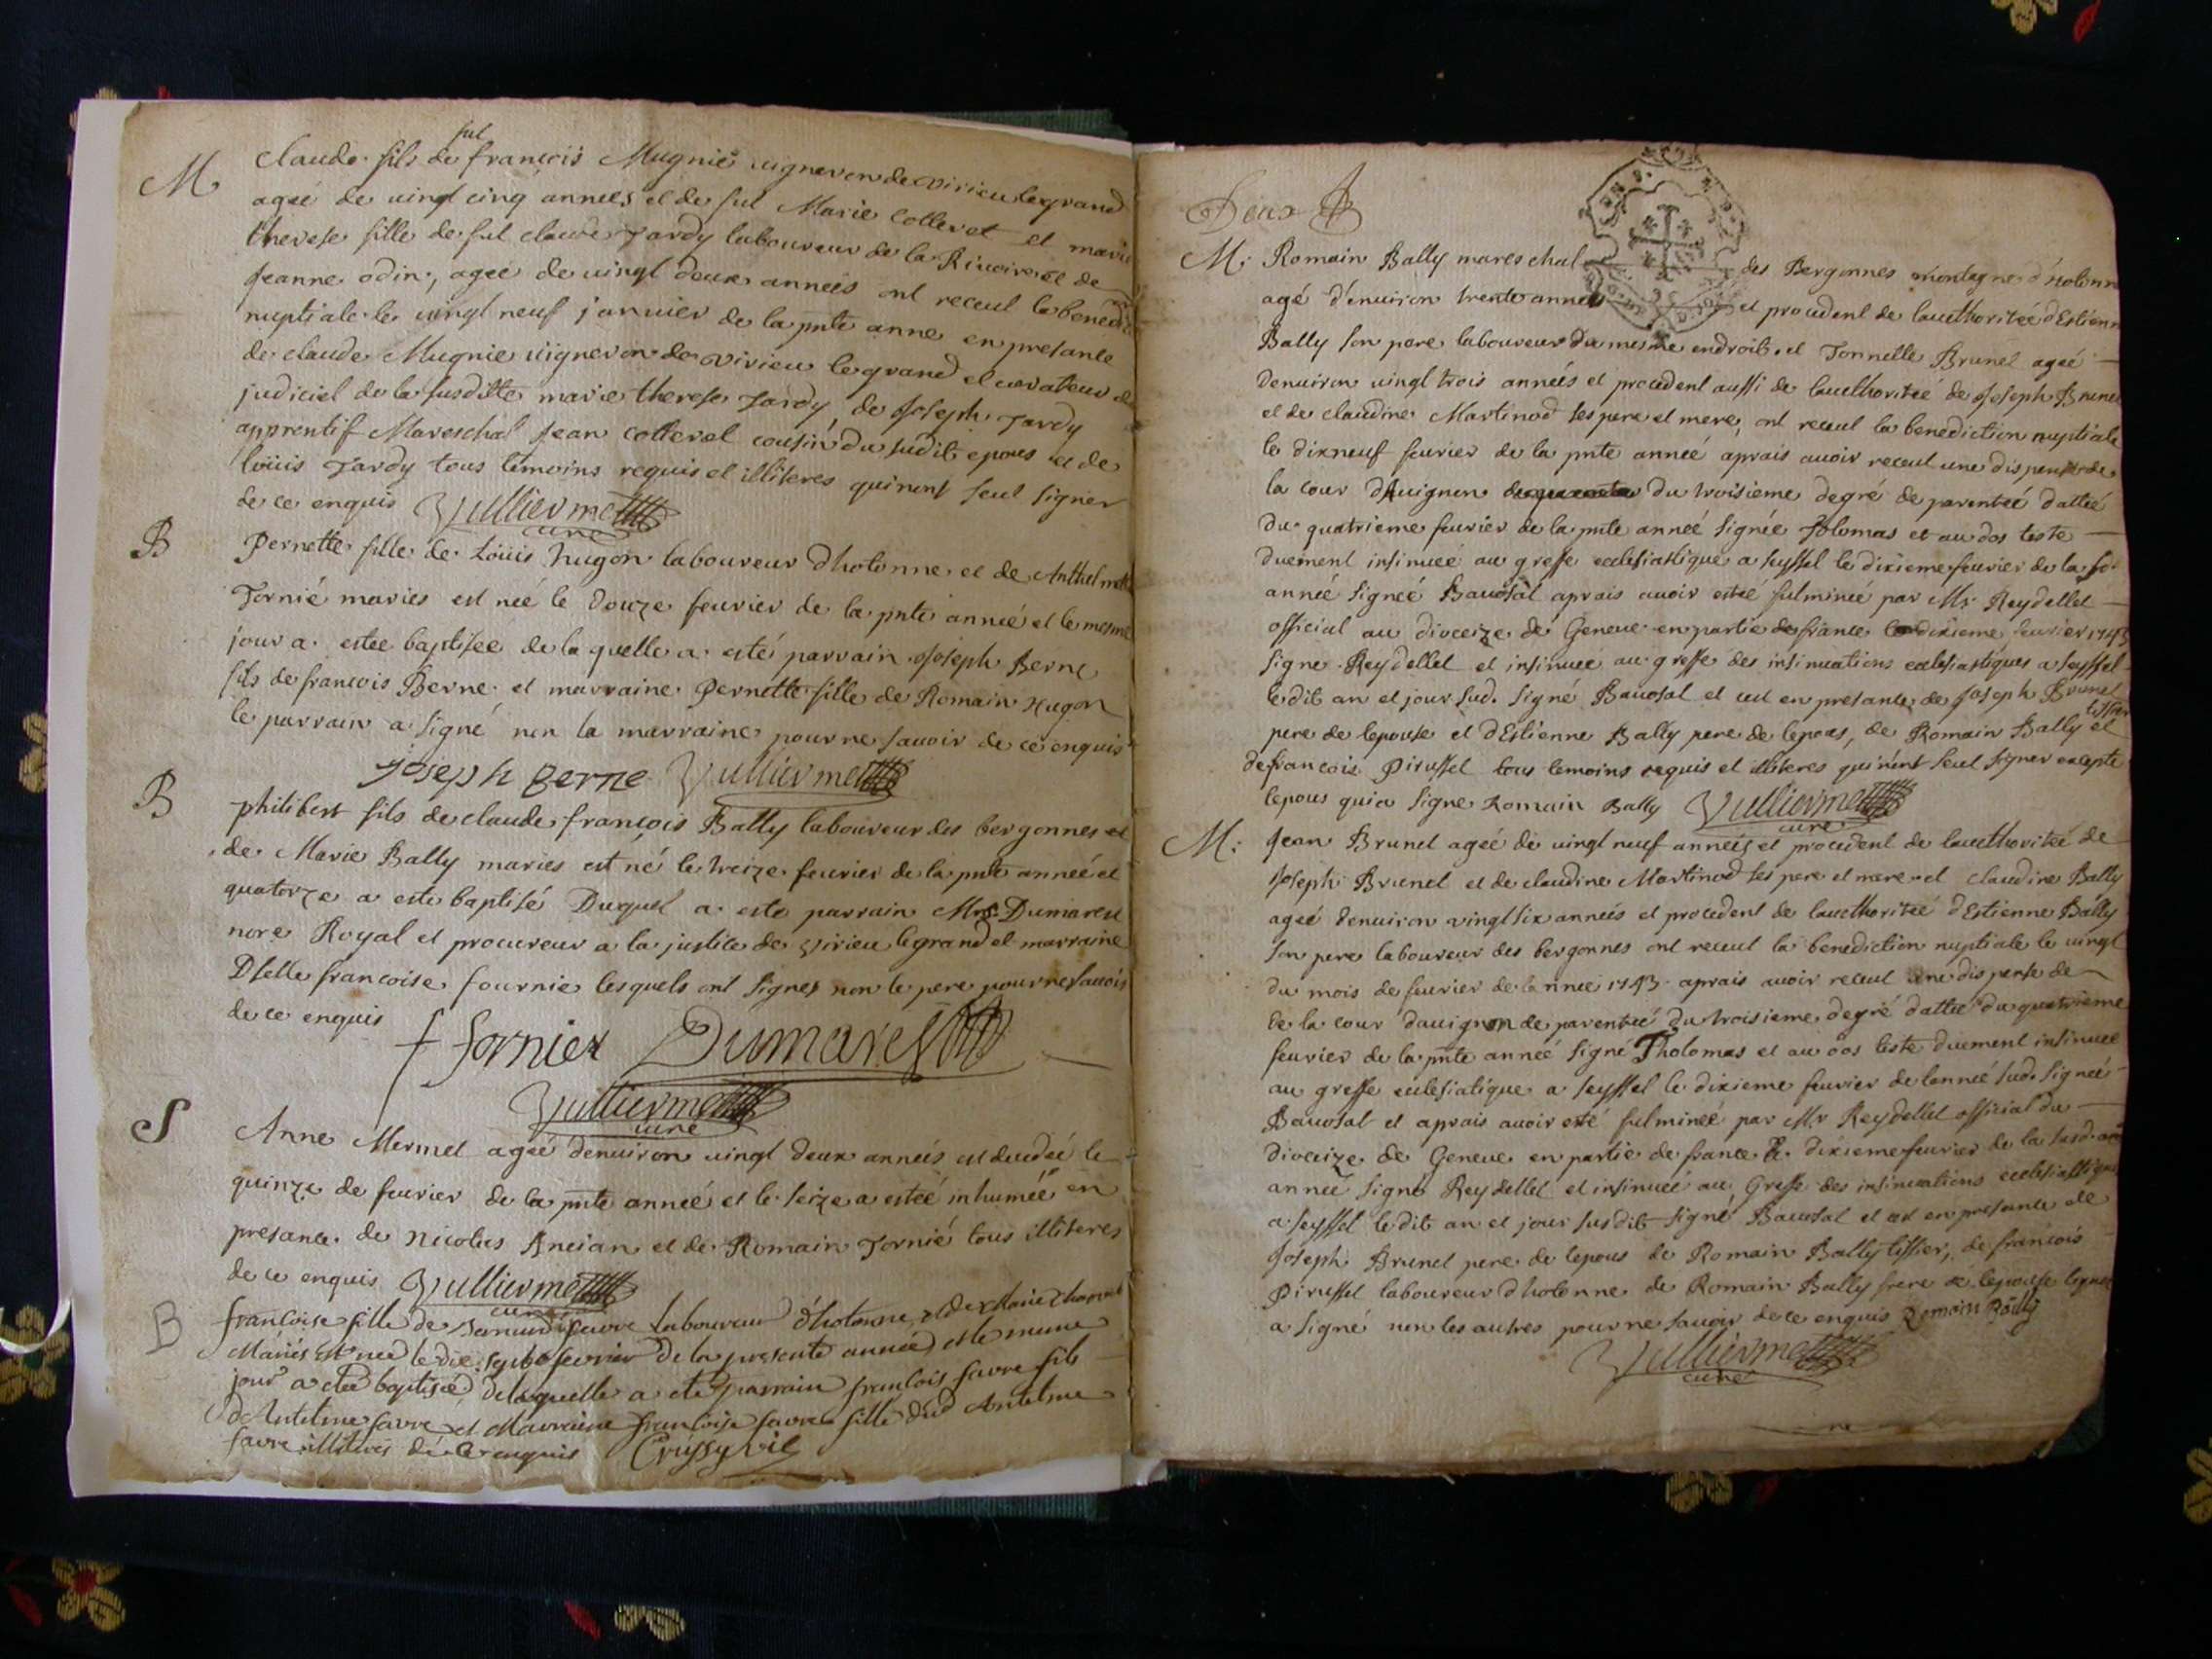 M Claude fils de feu francois Mugnié vigneron de virieu legrand
agée de vingt cinq années et de feu Marie Colleret et marie
therese fille de feu claude Jardy laboureur de la Rivoire et de
Jeanne odin, agée de vingt deux années ont receut la benedic
nuptiale le vingt neuf janvier de la pnte anne en presante
de claude Mugnie vigneron de virieu le grand et curateur
judiciel de la susditte marie therese Jardy, de Joseph Jardy
apprentif Mareschal Jean colleret cousin du sudit epous et de
loüis Jardy tous temoins requis et illiteres qui nont seut signer
de ce enquis Vulliermet
curé
B Pernette fille de Loüis hugon laboureur dhotonne et de Anthelmette
Tornié mariés est née le douze fevrier de la pnte année et le mesme
jour a estee baptisée de la quelle a esté parrain Joseph Berne
fils de francois Berne et marraine Pernette fille de Romain Hugon
le parrain a signé non la marraine pour ne savoir de ce enquis
joseph berne Vulliermet
B philibert fils de claude francois Bally laboureur des bergonnes et
de Marie Bally mariés est né le treize fevrier de la pnte année et
quatorze a este baptisé Duquel a esté parrain Mre Dumarest
nore Royal et procureur a la justice de virieu legrand et marraine
Dselle francoise fournie lesquels ont signes non le pere pour ne savoir
de ce enquis
f fornier Dumarest
Vulliermet
curé
S Anne Mermet agée denviron vingt deux années est decedée le
quinze de fevrier de la pnte année et le seize a estée inhumée en
presante de nicolas Ancian et de Romain Tornié tous illiteres
de ce enquis Vulliermet
curé
B francoise fille de favre laboureur d'hotonne et de Marie
Mariés est née le dix sept fevrier de la presente année et le meme
jour a eté baptisée de laquelle a eté parrain francois favre fils
d'Antelme favre et Marraine francoise favre fille dud Antelme
favre illiteres de ce enquis Crussy vic
Deux
M: Romain Bally mareschal des Bergonnes montagne d'hotonne
agé d'environ trente années et procedent de laucthoritée dEstienne
Bally son pere laboureur du mesme endroit et Tonnette Brunet agée
denviron vingt trois années et procedent aussi de laucthoritée de Joseph Brunet
et de claudine Martinod ses pere et mere, ont receut la benediction nuptiale
le dixneuf fevrier de la pnte année aprais avoir receut une dispense de
la cour dAvignon du troisieme degré de parentée dattée
du quatrieme fevrier de la pnte année signée Tolomas et au dos teste
duement insinueé au greffe ecclesiastique a seyssel le dixieme fevrier de la sd.
année signée Bavosat aprais avoir estée fulminée par Mr Reydellet
official au dioceize de Geneve en partie de france le dixieme fevrier 1743
signe Reydellet et insinuee au greffe des insinuations ecclesiastiques a seyssel
ledit an et jour sud. signé Bavosat et cest en presante de Joseph Brunet
pere de lepouse et dEstienne Bally pere de lepous, de Romain Bally tissier et
de francois Pirussel tous temoins requis et illiteres qui nont seut signer excepte
lepous qui a signe Romain Bally Vulliermet
curé
M: Jean Brunet agée de vingt neuf années et procedent de laucthoritée de
Joseph Brunet et de claudine Martinod ses pere et mere et claudine Bally
agée denviron vingt six années et procedent de laucthoritée dEstienne Bally
son pere laboureur des bergonnes ont receut la benediction nuptiale le vingt
du mois de fevrier de lannee 1743 aprais avoir receut une dispense de
de la cour davignon de parentée du troisieme degré dattée du quatrieme
fevrier de la pnte année signé Tholomas et au dos teste duement insinuee
au greffe ecclesiatique a seyssel le dixieme fevrier de lannée sud. signée
Bavosat et aprais avoir esté fulmineé par Mr Reydellet official du
dioceize de Geneve en partie de france le dixieme fevrier de la susd.
année signé Reydellet et insinuée au Greffe des insinuations ecclesiastiques
a seyssel ledit an et jour susdit signé Bavosat et cest en presante de
Joseph Brunet pere de lepous de Romain Bally tissier, de francois
Pirussel laboureur dhotonne de Romain Bally frere de lepouse lequel
a signé non les autres pour ne savoir de ce enquis Romain Bally
Vulliermet
curé